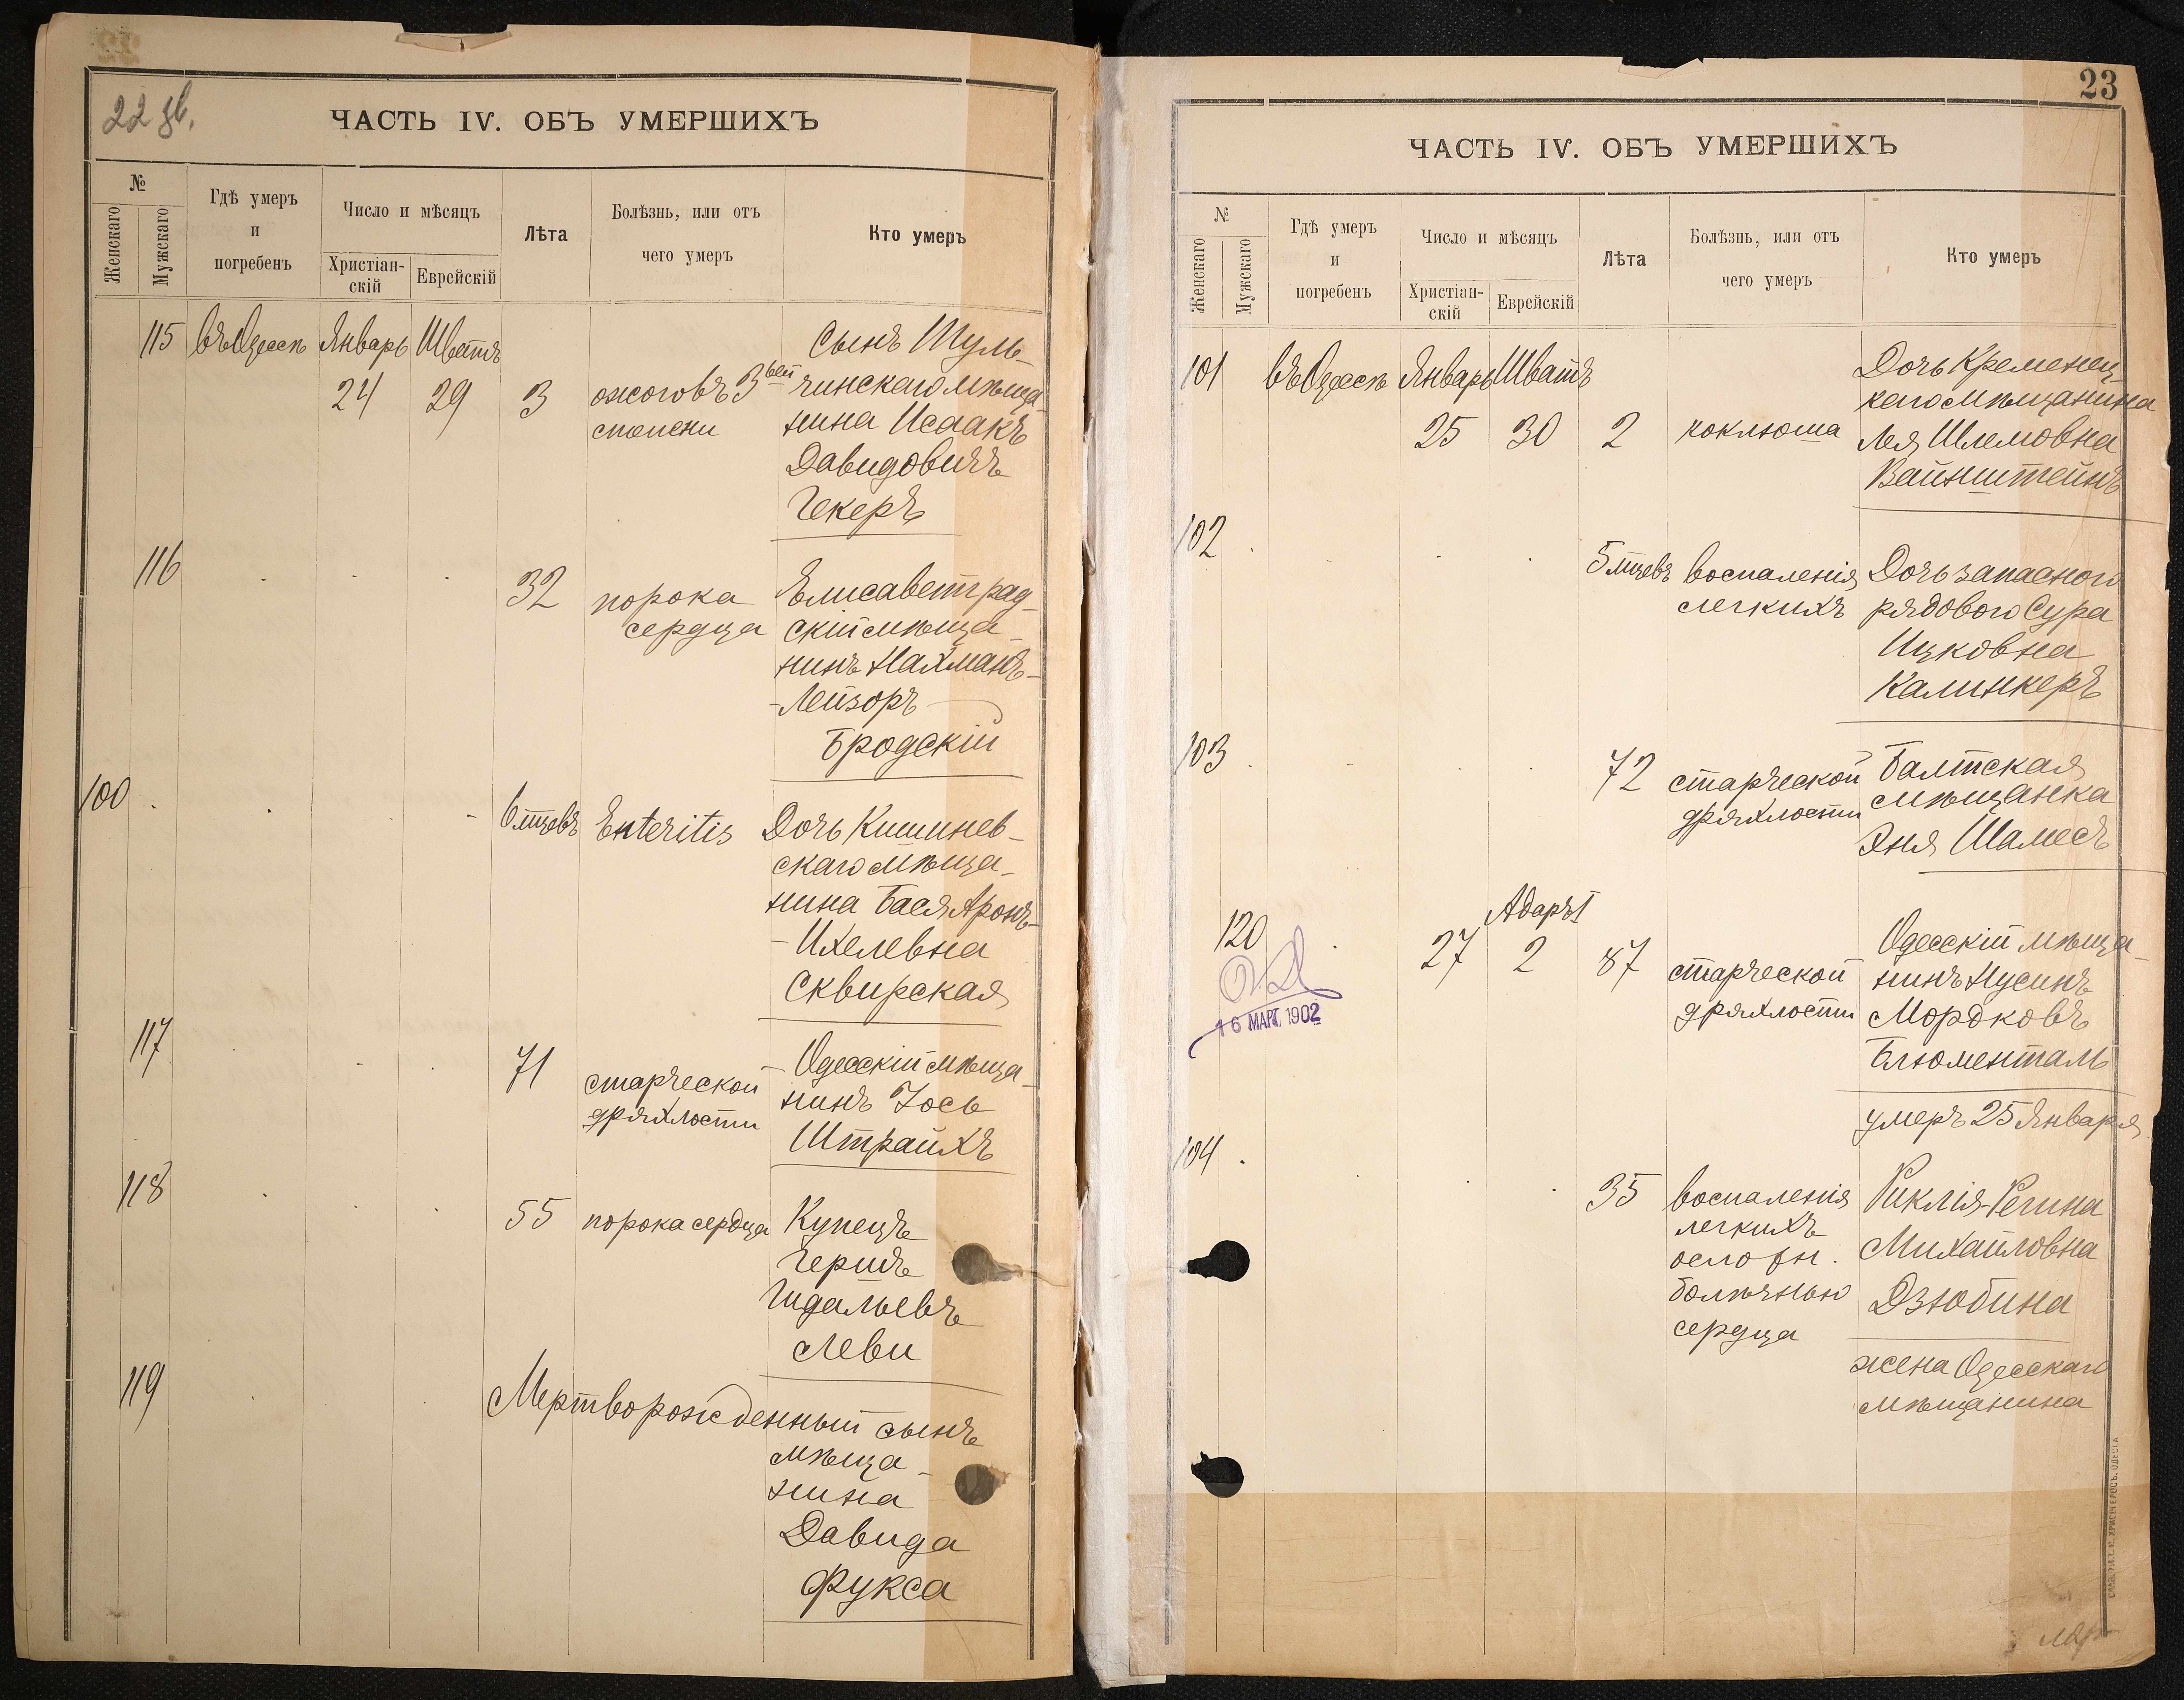 22 зв.
ЧАСТЬ IV. ОБЪ УМЕРШИХЪ
№
Женскаго
Мужскаго
Гдѣ умеръ
и
погребенъ
Число и мѣсяцъ
Христіан-
скій
Еврейскій
Лѣта
Болѣзнь, или отъ
чего умеръ
Кто умеръ
115 въ Одессѣ Январь Шватъ
24 29 3
ожоговъ 3ьей
степени
Сынъ Шуль-
чинскаго мѣща-
нина Исаакъ
Давидовичъ
Гекеръ
116 32
порока
сердца
Елисаветград-
скій мѣща-
нинъ Нахманъ-
-Лейзоръ
Бродскій
100 6 мцевъ Enteritis
Дочь Кишинев-
скаго мѣща-
нина Бася Аронъ-
-Ихелевна
Сквирская
117 71
старческой
дряхлости
Одесскій мѣща-
нинъ Іось
Штрайхъ
118 55 порока сердца
Купецъ
Гершъ
Гидальевъ
Леви
119 Мертворожденный сынъ
мѣща-
нина
Давида
Фукса
23
ЧАСТЬ IV. ОБЪ УМЕРШИХЪ
№
Женскаго
Мужскаго
Гдѣ умеръ
и
погребенъ
Число и мѣсяцъ
Христіан-
скій
Еврейскій
Лѣта
Болѣзнь, или отъ
чего умеръ
Кто умеръ
101 въ Одессѣ Январь Шватъ
25 30 2 коклюша
Дочь Кременец-
каго мѣщанина
Лея Шлемовна
Вайнштейнъ
102 5 мцевъ
воспаленія
легкихъ
Дочь запасного
рядового Сура
Ицковна
Калинкеръ
103 72
старческой
дряхлости
Балтская
мѣщанка
Эня Шамесъ
Адаръ I
120 27 2 87
старческой
дряхлости
Одесскій мѣща-
нинъ Нусинъ
Мордковъ
Блюменталь
умеръ 25 Января
16 МАРТ. 1902
104 35
воспаленія
легкихъ
ослофн.
болѣзнью
сердца
Риклія-Регина
Михайловна
Дзюбина
жена Одесскаго
мѣщанина